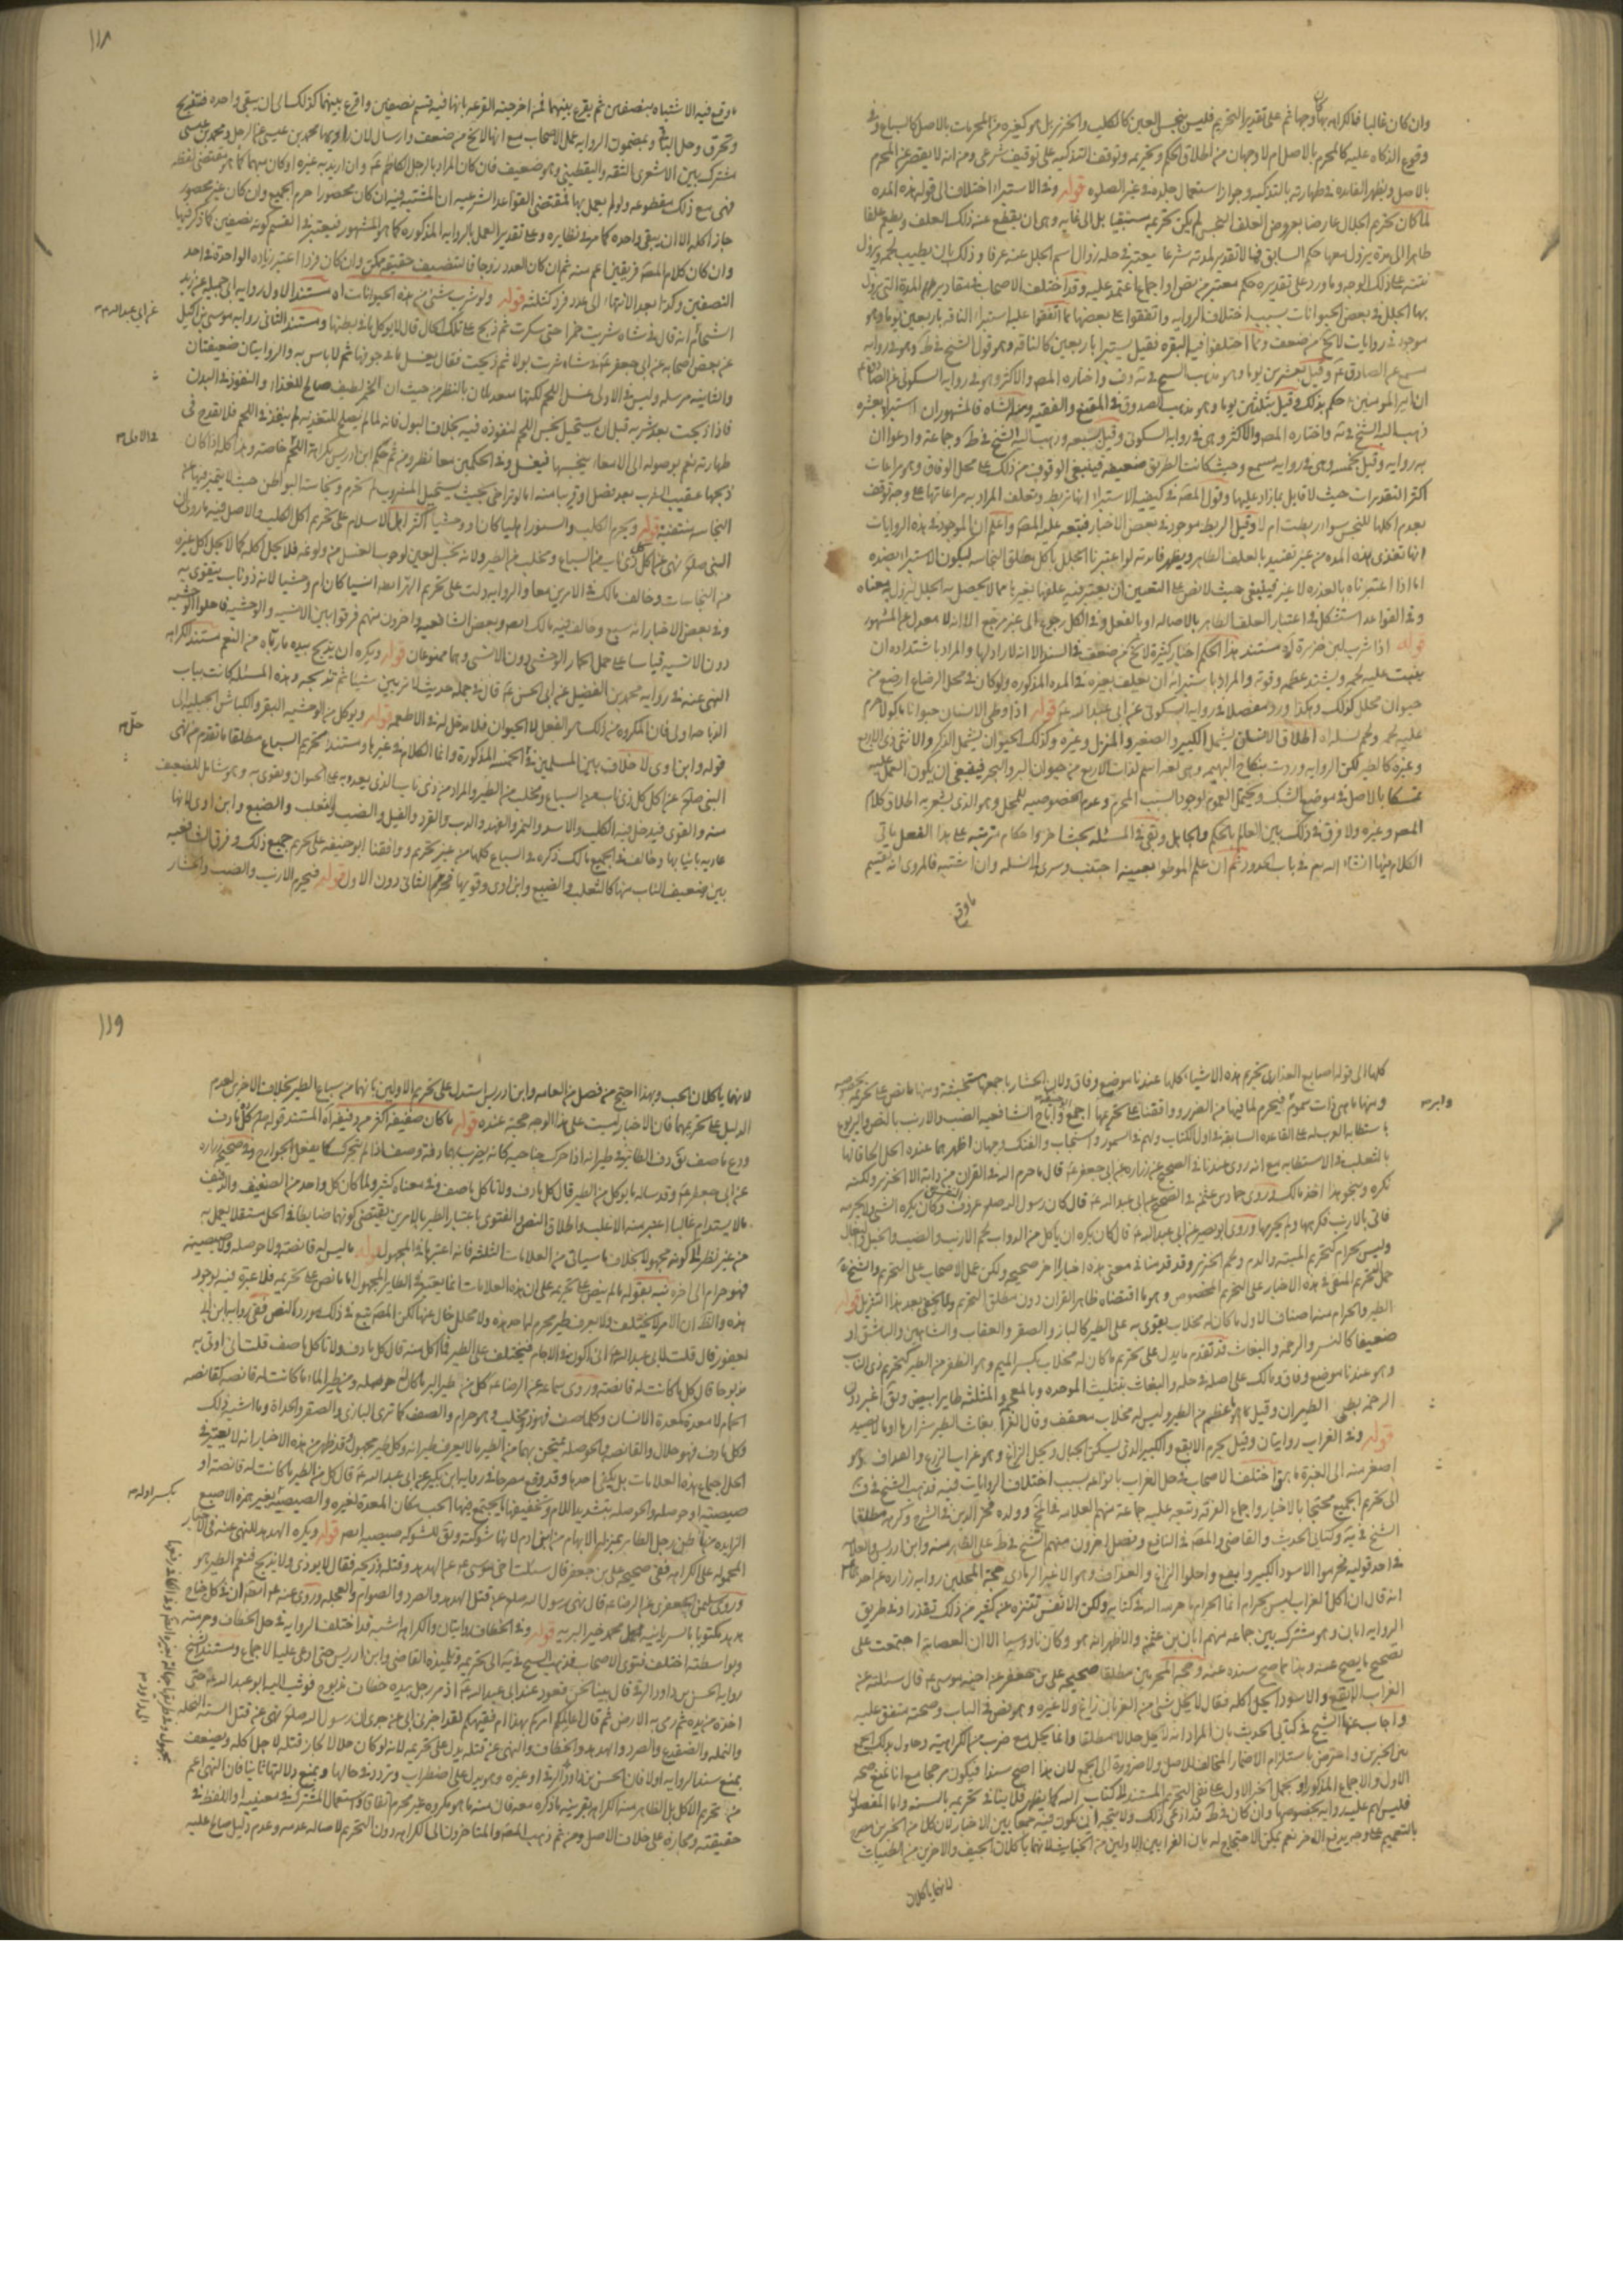 وان كان غالبا فالكراهه بها كان وجها ثم على تقدير التحريم فليس بنجس العين كالكلب والخنزير بل هو كغيره من المحرمات بالاصل كالسباع وفي
وقوع الذكاه عليه كالمحرم بالاصل ام لا وجهان من اطلاق الحكم وتحريمه وتوقف التذكيه على توقيف شرعي ومن انه لا يقصر عن المحرم
بالاصل ويظهر الفائده في طهارته بالتذكيه وجواز استعمال جلده في غير الصلوه قوله وفي الاستبراء اختلاف الى قوله هذه المده
لما كان تحريم الجلال عارضا بعروض العلف النجس لم يكن تحريمه مستبقيا بل الى غايه وهي ان يقطع عنه ذلك العلف ويطعم علفا
طاهرا الى مده يزول معها حكم السابق فما لا تقدير لمدته شرعا يعتبر في حله زوال اسم الجلل عنه عرفا وذلك بان يطيب لحمه ويزول
نتنه على ذلك الوجه وما ورد على تقديره حكم معتبر من نص او اجماع اعتمد عليه وقد اختلف الاصحاب في مقادير المدة التي يزول
بها الجلل في بعض الحيوانات بسبب اختلاف الروايه واتفقوا على بعضها مما اتفقوا عليه استبراء الناقه باربعين يوما وهو
موجود في روايات لا يخ من ضعف ومما اختلفوا فيه البقره فقيل يستبرا باربعين كالناقه وهو قول الشيخ في ط وهو في روايه
مسمع عن الصادق ع وقيل بعشرين يوما وهو مذهب الشيخ في ية وف واختاره المص والاكثر وهو في روايه السكوني عن الصادق ع
ان امير المومنين ع حكم بذلك وقيل بثلثين يوما وهو مذهب الصدوق في المقنع والفقيه ومنه الشاه فالمشهور ان استبراءها بعشره
ذهب اليه الشيخ في ية واختاره المص والاكثر وهي في روايه السكوني وقيل بسبعه وذهب اليه الشيخ في ط وجماعة وادعوا ان
به روايه وقيل بخمسه وهي في روايه مسمع وحيث كانت الطريق ضعيفه فينبغي الوقوف من ذلك على محل الوفاق وهو مراعات
اكثر التقديرات حيث لا قايل بما زاد عليها وقول المص في كيفيه الاستبراء انها تربط وتعلف المراد به مراعاتها على وجه توقف
بعدم اكلها للنجس سواء ربطت ام لا وقيل الربط موجود في بعض الاخبار فتبعه عليه المص واعلم ان الموجود في هذه الروايات
انها تغذى هذه المده من غير تقييد بالعلف الطاهر ويظهر فائدته لو اعتبرنا الجلل باكل مطلق النجاسه ليكون الاستبراء بضده
اما اذا اعتبرناه بالعذره لا غير فينبغي حيث لا نص على التعيين ان يعتبر فيه علفها بغيرها مما لا يحصل به الجلل ليزول معناه
قوله اذا شرب لبن خنزيره مستند هذا الحكم اخبار كثيرة لا يخ من ضعف في السند الا انه لا راد لها والمراد باشتداده ان
ينبت عليه لحمه ويشتد عظمه وقوته والمراد باستبرائه ان يعلف بغيره في المده المذكوره ولو كان في محل الرضاع ارضع من
حيوان محلل كذلك وهكذا ورد مفصلا في روايه السكوني عن ابي عبد الله ع قوله اذا وطي الانسان حيوانا ماكولا حرم
عليه لحمه ولحم نسله اه اطلاق الانسان يشمل الكبير والصغير والمنزل وغيره وكذلك الحيوان يشمل الذكر والانثى ذي الاربع
وغيره كالطير لكن الروايه وردت بنكاح البهيمه وهي لغه اسم لذات الاربع من حيوان البر والبحر فينبغي ان يكون العمل عليه
تمسكا بالاصل في موضع الشك ويحتمل العموم لوجود السبب المحرم وعدم الخصوصيه للمحل وهو الذي يشعر به اطلاق كلام
المص وغيره ولا فرق في ذلك بين العالم بالحكم والجاهل وبقي في المسئله بحث اخر واحكام مترتبه على هذا الفعل ياتي
الكلام فيها ان شاء الله تعالى في باب الحدود ثم ان علم الموطوء بعينه اجتنب وسرى الى نسله وان اشتبه فالمروي انه يقسم
ما وقع
١١٨
ما وقع فيه الاشتباه بنصفين ثم يقرع بينهما فمن اخرجته القرعه بانها فيه قسم نصفين واقرع بينهما كذلك الى ان يبقى واحده فتذبح
وتحرق وحل الباقي وبمضمون الروايه عمل الاصحاب مع انها لا يخ من ضعف وارسال لان راويها محمد بن عيسى عن الرجل ومحمد بن عيسى
مشترك بين الاشعري الثقه واليقطيني وهو ضعيف فان كان المراد بالرجل الكاظم ع وان اريد به غيره او كان مبهما كما هو مقتضى لفظه
فهي مع ذلك مقطوعه ولو لم يعمل بها لمقتضى القواعد الشرعيه ان المشتبه فيه ان كان محصورا حرم الجميع وان كان غير محصور
جاز اكله الا ان يبقى واحده كما مر في نظايره وعلى تقدير العمل بالروايه المذكوره كما هو المشهور فيعتبر في القسم كونه نصفين كما ذكر فيها
وان كان كلام المص فريقين اعم منه ثم ان كان العدد زوجا فالتنصيف حقيقه ممكن وان كان فردا اعتبر زياده الواحدة في احد
النصفين وكذا بعد الانتهاء الى عدد فرد كثلثه قوله ولو شرب شيء من هذه الحيوانات اه مستند الاول روايه ابي جميله عن زيد
الشحام انه قال في شاه شربت خمرا حتى سكرت ثم ذبحت على تلك الحال قال لا يوكل ما في بطنها ومستند الثاني روايه موسى بن اكيل
عن بعض اصحابه عن ابي جعفر ع في شاه شربت بولا ثم ذبحت فقال يغسل ما في جوفها ثم لا باس به والروايتان ضعيفتان
والثانيه مرسله وليس في الاولى غسل اللحم لكنها مساعدتان بالنظر من حيث ان الخمر لطيف صالح للغذاء والنفوذ في البدن
فاذا ذبحت بعد شربه قبل ان يستحيل نجس اللحم لنفوذه فيه بخلاف البول فانه لما لم يصلح للتغذيه لم ينفذ في اللحم فلا يقدح في
طهارته نعم بوصوله الى الامعاء ينجسها فيغسل وفي الحكمين معا نظر ومن ثم حكم ابن ادريس بكراهة اللحم خاصه وهذا كله اذا كان
ذبحها عقيب الشرب بعد فصل او قريبا منه اما لو تراخى بحيث يستحيل المشروب لم تحرم ونجاسات البواطن حيث لا يتميز فيها عين
النجاسه منتفيه قوله ويحرم الكلب والسنور اهليا كان او وحشيا اكثر اهل الاسلام على تحريم اكل الكلب والاصل فيه ما روي ان
النبي صلع نهى عن اكل كل ذي ناب من السباع ومخلب من الطير ولانه نجس العين لوجوب الغسل من ولوغه فلا يحل اكله كما لا يحل اكل غيره
من النجاسات وخالف مالك في الامرين معا والروايه دلت على تحريم الهر ايضا انسيا كان ام وحشيا لانه ذو ناب يتقوى به
وفي بعض الاخبار انه سبع وخالف فيه مالك ايضا وبعض الشافعيه واخرون منهم فرقوا بين الانسيه والوحشيه فاحلوا الوحشيه
دون الانسيه قياسا على حمل الحمار الوحشي دون الانسي وهما ممنوعان قوله ويكره ان يذبح بيده ما رباه من النعم مستند الكراهه
النهي عنه في روايه محمد بن الفضيل عن ابي الحسن ع قال في جمله حديث لا تربين شيئا ثم تذبحه وهذه المسئله كانت بباب
الذباحه اولى فان المكروه من ذلك هو الفعل لا الحيوان فلا مدخل له في الاطعمه قوله ويوكل من الوحشيه البقر والكباش الجبليه الى
قوله وابن اوى لا خلاف بين المسلمين في الخمسه المذكورة وانما الكلام في غيرها ومستند تحريم السباع مطلقا ما تقدم من نهي
النبي صلع عن اكل كل ذي ناب من السباع ومخلب من الطير والمراد من ذي ناب الذي يعدو به على الحيوان ويقوى به وهو شامل للضعيف
منه والقوي فيدخل فيه الكلب والاسد والنمر والفهد والدب والقرد والفيل والضب والثعلب والضبع وابن اوى لانها
عاديه بانيابها وخالف في الجميع مالك فكره السباع كلها من غير تحريم ووافقنا ابو حنيفه على تحريم جميع ذلك وفرق الشافعيه
بين ضعيف الناب منها كالثعلب والضبع وابن اوى وقويها فحرم الثاني دون الاول قوله فيحرم الارنب والضب والحشار
عن ابي عبد الله ع
في الاولى
كلها الى قوله اصابع العذارى تحريم هذه الاشياء كلها عندنا موضع وفاق ولان الحشار باجمعها مستخبثة ومنها ما نص على تحريمه بخصوصه
ومنها ما هي ذات سموم فيحرم لما فيها من الضرر ووافقنا على تحريمها اجمع ابو حنيفه واباح الشافعيه الضب والارنب بالنص واليربوع
باستطابه العرب له على القاعده السابقه في اول الكتاب ولهم في السمور والسنجاب والفنك وجهان اظهرهما عنده الحل الحاقا لها
بالثعلب في الاستطابه مع انه روى عندنا في الصحيح عن زراره عن ابي جعفر ع قال ما حرم الله في القران من دابة الا الخنزير ولكنه
نكره وبنحو هذا اخذ مالك وروى حماد بن عثمن في الصحيح عن ابي عبد الله ع قال كان رسول الله صلع عزوف النفس وكان يكره الشي ولا يحرمه
فاتي بالارنب فكرهها ولم يحرمها وروى ابو بصير عن ابي عبد الله ع قال كان يكره ان ياكل من الدواب لحم الارنب والضب والخيل والبغال
وليس بحرام كتحريم الميته والدم ولحم الخنزير وقد قدمنا في معنى هذه اخبارا اخر صحيحه ولكن عمل الاصحاب على التحريم والشيخ
حمل التحريم المنفي في هذه الاخبار على التحريم المخصوص وهو ما اقتضاه ظاهر القران دون مطلق التحريم ولا يخفى بعد هذا التنزيل قوله
الطير والحرام منه اصناف الاول ما كان له مخلاب يقوى به على الطير كالباز والصقر والعقاب والشاهين والباشق او
ضعيفا كالنسر والرخمه والبغاث قد تقدم ما يدل على تحريم ما كان له مخلاب بكسر الميم وهو الظفر من الطير كتحريم ذي الناب
وهو عندنا موضع وفاق ومالك على اصله في حله والبغاث بتثليث الموحده وبالمعجمه والمثلثه طاير ابيض ويق اغبر دون
الرخمه بطي الطيران وقيل ما عظم من الطير وليس له مخلاب معقف وقال الفراء بغاث الطير شرارها وما لا يصيد
قوله وفي الغراب روايتان وقيل يحرم الابقع والكبير الذي يسكن الجبال ويحل الزاغ وهو غراب الزرع والغداف وهو
اصغر منه الى الغبرة ما هو اختلف الاصحاب في حل الغراب بانواعه بسبب اختلاف الروايات فيه فذهب الشيخ في ف
الى تحريم الجميع محتجا بالاخبار واجماع الفرقه وتبعه عليه جماعة منهم العلامه في المخ وولده فخر الدين في الشرح وكرهه مطلقا
الشيخ في ية وكتابي الحديث والقاضي والمص في النافع وفصل اخرون منهم الشيخ في ط على الظاهر منه وابن ادريس والعلامه
في احد قوليه فحرموا الاسود الكبير والابقع واحلوا الزاغ والغداف وهو الاغبر الرمادي حجة المحللين روايه زراره عن احدهما ع
انه قال ان اكل الغراب ليس بحرام انما الحرام ما حرمه الله في كتابه ولكن الانفس تتنزه عن كثير من ذلك تقذرا وفي طريق
الروايه ابان وهو مشترك بين جماعه منهم ابان بن عثمن والاظهر انه هو وكان ناووسيا الا ان العصابه اجتمعت على
تصحيح ما يصح عنه وهذا مما صح سنده عنه وحجه المحرمين مطلقا صحيحه علي بن جعفر عن اخيه موسى ع قال سئلته عن
الغراب الابقع والاسود ايحل اكله فقال لا يحل شي من الغربان زاغ ولا غيره وهو نص في الباب وصحته متفق عليه
واجاب عنها الشيخ في كتابي الحديث بان المراد انه لا يحل حلالا مطلقا وانما يحل مع ضرب من الكراهيه وحاول بذلك الجمع
بين الخبرين واعترض باستلزام الاضمار المخالف للاصل ولا ضرورة الى الجمع لان هذا اصح سندا فيكون مرجحا مع انا نمنع صحه
الاول والاجماع المذكور او يحمل الخبر الاول على نفي التحريم المستند الى كتاب الله كما يظهر فلا ينافي تحريمه بالسنه واما المفصلون
فليس لهم عليه روايه بخصوصها وان كان في ط قد ادعى ذلك ولا يتجه ان يكون فيه جمعا بين الاخبار لان كلا من الخبرين صرح
بالتعميم على وجه يدفع الاخر نعم يمكن الاحتجاج له بان الغرابين الاولين من الخبائث لانهما ياكلان الجيف والاخرين من الطيبات
لانهما ياكلان
وابرص
١١٩
لانهما ياكلان الحب وبهذا احتج من فصل من العامه وابن ادريس استدل على تحريم الاولين بانهما من سباع الطير بخلاف الاخرين لعدم
الدليل على تحريمهما فان الاخبار ليست على هذا الوجه حجة عنده قوله ما كان صفيفه اكثر من دفيفه اه المستند قوله ع كل ما دف
ودع ما صف يق دف الطاير في طيرانه اذا حرك جناحيه كانه يضرب بهما دفه وصف اذا لم يتحرك كما يفعل الجوارح وفي صحيحه زراره
عن ابي جعفر ع وقد ساله ما يوكل من الطير قال كل ما دف ولا تاكل ما صف وفي معناه كثير ولما كان كل واحد من الصفيف والدفيف
مالا يستدام غالبا اعتبر منه الاغلب واطلاق النص والفتوى باعتبار الطير بالامرين يقتضي كونهما ضابطا في الحل مستقلا يعمل به
من غير نظر الى كونه مجهولا بخلاف ما سياتي من العلامات الثلثه فانه اعتبرها في المجهول قوله ما ليس له قانصة ولا حوصله ولا صيصيه
فهو حرام الى اخره نبه بقوله ما لم ينص على تحريمه على ان هذه العلامات انما يعتبر في الطاير المجهول اما ما نص على تحريمه فلا عبرة فيه بوجود
هذه والظ ان الامر لا يختلف ولا يعرف طير محرم له احد هذه ولا محلل خال عنها لكن المص تبع في ذلك مورد النص ففي روايه ابن ابي
يعفور قال قلت لابي عبد الله ع اني اكون في الاجام فيختلف علي الطير فما اكل منه قال كل ما دف ولا تاكل ما صف قلت اني اوتى به
مذبوحا قال كل ما كانت له قانصة وروى سماعه عن الرضا ع كل من طير البر ما كان له حوصله ومن طير الماء ما كانت له قانصه كقانصه
الحمام لا معدة كمعدة الانسان وكلما صف فهو ذو مخلب وهو حرام والصف كما ترى البازي والصقر والحداة وما اشبه ذلك
وكل ما دف فهو حلال والقانصه والحوصله يمتحن بهما من الطير ما لا يعرف طيرانه وكل طير مجهول وقد ظهر من هذه الاخبار انه لا يعتبر في
الحل اجتماع هذه العلامات بل يكفي احدها وقد وقع مصرحا في روايه ابن بكير عن ابي عبد الله ع قال كل من الطير ما كانت له قانصه او
صيصيه او حوصله والحوصله بتشديد اللام وتخفيفها ما يجتمع فيها الحب مكان المعدة لغيره والصيصيه بغير همز الاصبع
الزايده من باطن رجل الطاير بمنزله الابهام من بني ادم لانها شوكته ويق للشوكه صيصيه ايضا قوله ويكره الهدهد للنهي عنه في الاخبار
المحمول على الكراهه ففي صحيحه علي بن جعفر قال سئلت اخي موسى ع عن الهدهد وقتله وذبحه فقال لا يوذى ولا يذبح فنعم الطير هو
وروى سليمن الجعفري عن الرضا ع قال نهى رسول الله صلع عن قتل الهدهد والصرد والصوام والنحله وروى عنه ع ايضا ان في كل جناح
هدهد مكتوبا بالسريانيه ال محمد خير البريه قوله وفي الخطاف روايتان والكراهه اشبه قد اختلف الروايه في حل الخطاف وحرمته
وبواسطته اختلف فتوى الاصحاب فذهب الشيخ في ية الى تحريمه وتلميذه القاضي وابن ادريس حتى ادعى عليه الاجماع ومستند الشيخ
روايه الحسن بن داود الرقي قال بينا نحن قعود عند ابي عبد الله ع اذ مر رجل بيده خطاف مذبوح فوثب اليه ابو عبد الله ع حتى
اخذه من يده ثم رمى به الارض ثم قال اعالمكم امركم بهذا ام فقيهكم لقد اخبرني ابي عن جدي ان رسول الله صلع نهى عن قتل السته النحله
والنمله والضفدع والصرد والهدهد والخطاف والنهي عن قتله يدل على تحريمه لانه لو كان حلالا لجاز قتله لاجل اكله ويضعف
بمنع سند الروايه اولا فان الحسن بن داود الرقي او غيره وهو يدل على اضطراب وتردد في حالها وبمنع دلالتها ثانيا فان النهي اعم
من تحريم الاكل بل الظاهر منه الكراهه بقرينه ما ذكره معه فان منه ما هو مكروه غير محرم اتفاقا واستعمال المشترك في معنييه او اللفظ في
حقيقته ومجازه على خلاف الاصل ومن ثم ذهب المص والمتاخرون الى الكراهه دون التحريم لاصاله عدمه وعدم دليل صالح عليه
بكسر اوله